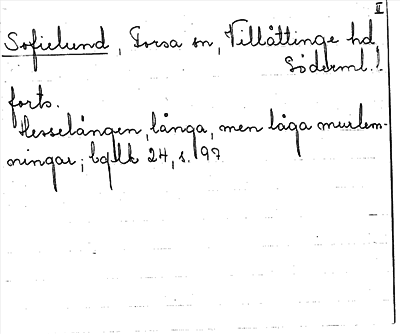 II
Sofielund, Torsa sn, Villåttinge hd,
Söderml. l.
forts.
Hesselången, långa, men låga murlem-
ningar; bqlk 24, s. 197